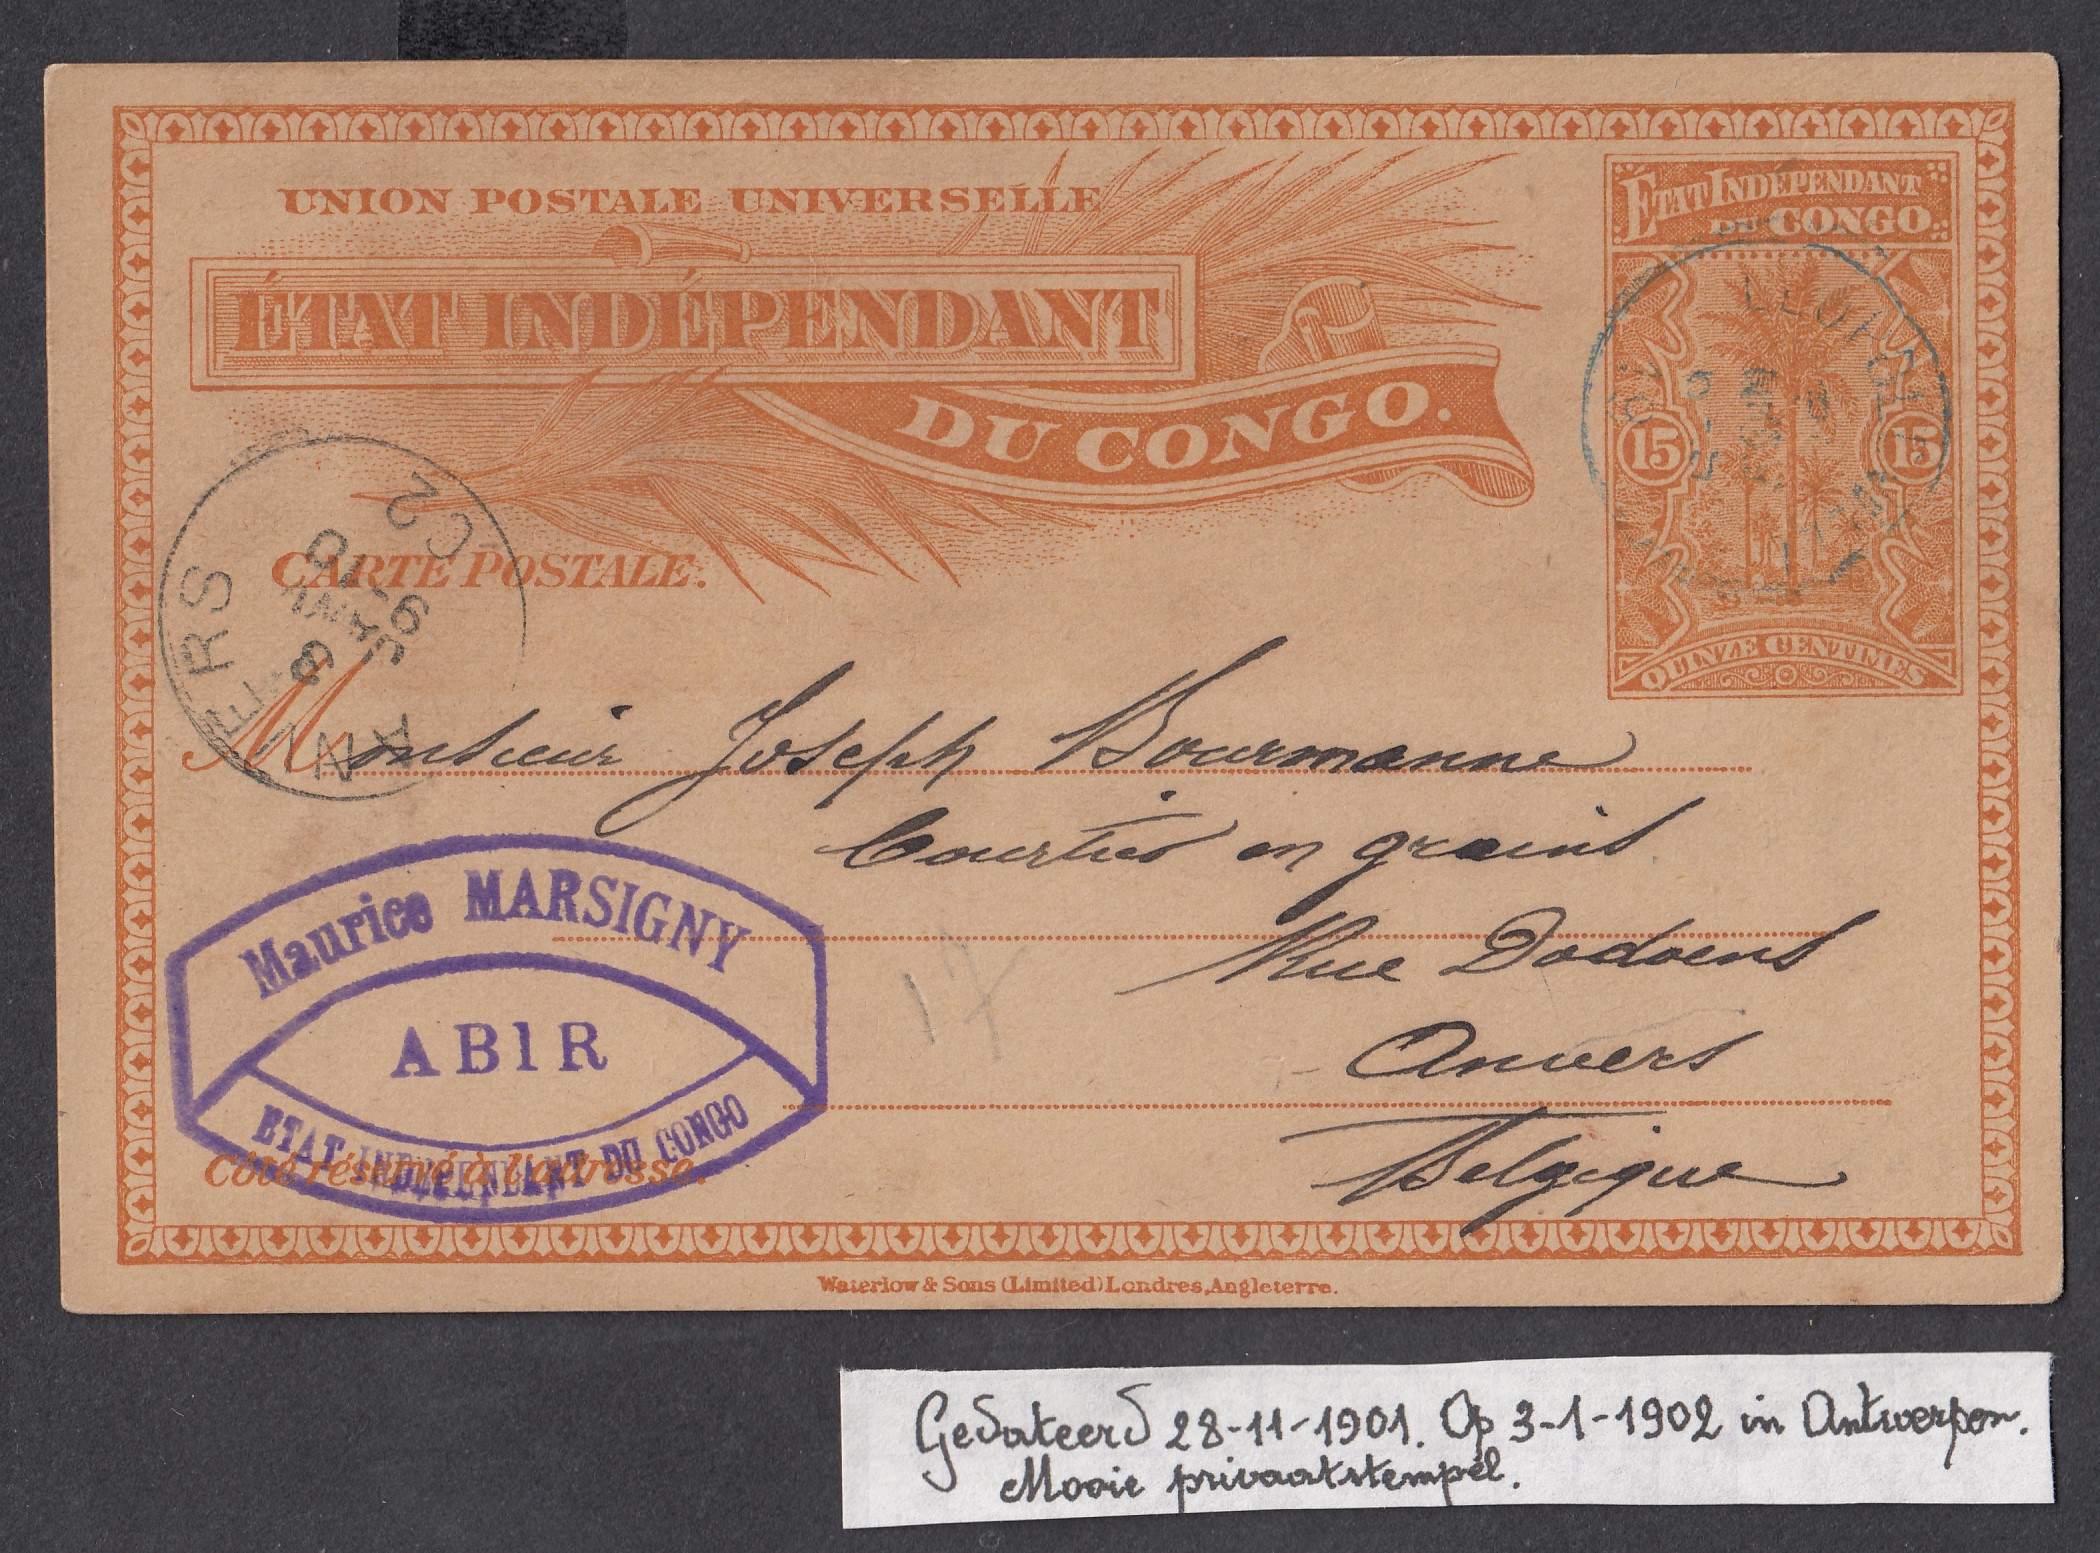 UNION POSTALE UNIVERSELLE
ÉTAT INDÉPENDANT
DU CONGO.
ETAT INDÉPENDANT
DU CONGO.
15 15
QUINZE CENTIMES
CARTE POSTALE.
C2
9-10
3
ANVERS
Monsieur Joseph Bourmanne
Courtier en grains
Rue Dodoens
Anvers
Belgique
17
Maurice MARSIGNY
ABIR
ETAT INDÉPENDANT DU CONGO
Côté résumé à l'adresse.
Waterlow & Sons (Limited) Londres, Angleterre.
Gedateerd 28-11-1901. Op 3-1-1902 in Antwerpen.
Mooie privaatstempel.